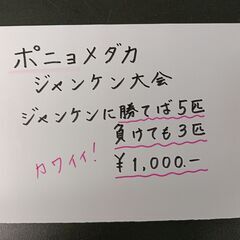 ポニョメダカ
ジャンケン大会
ジャンケンに勝てば5匹
負けても3匹
カワイイ!
¥1,000.-